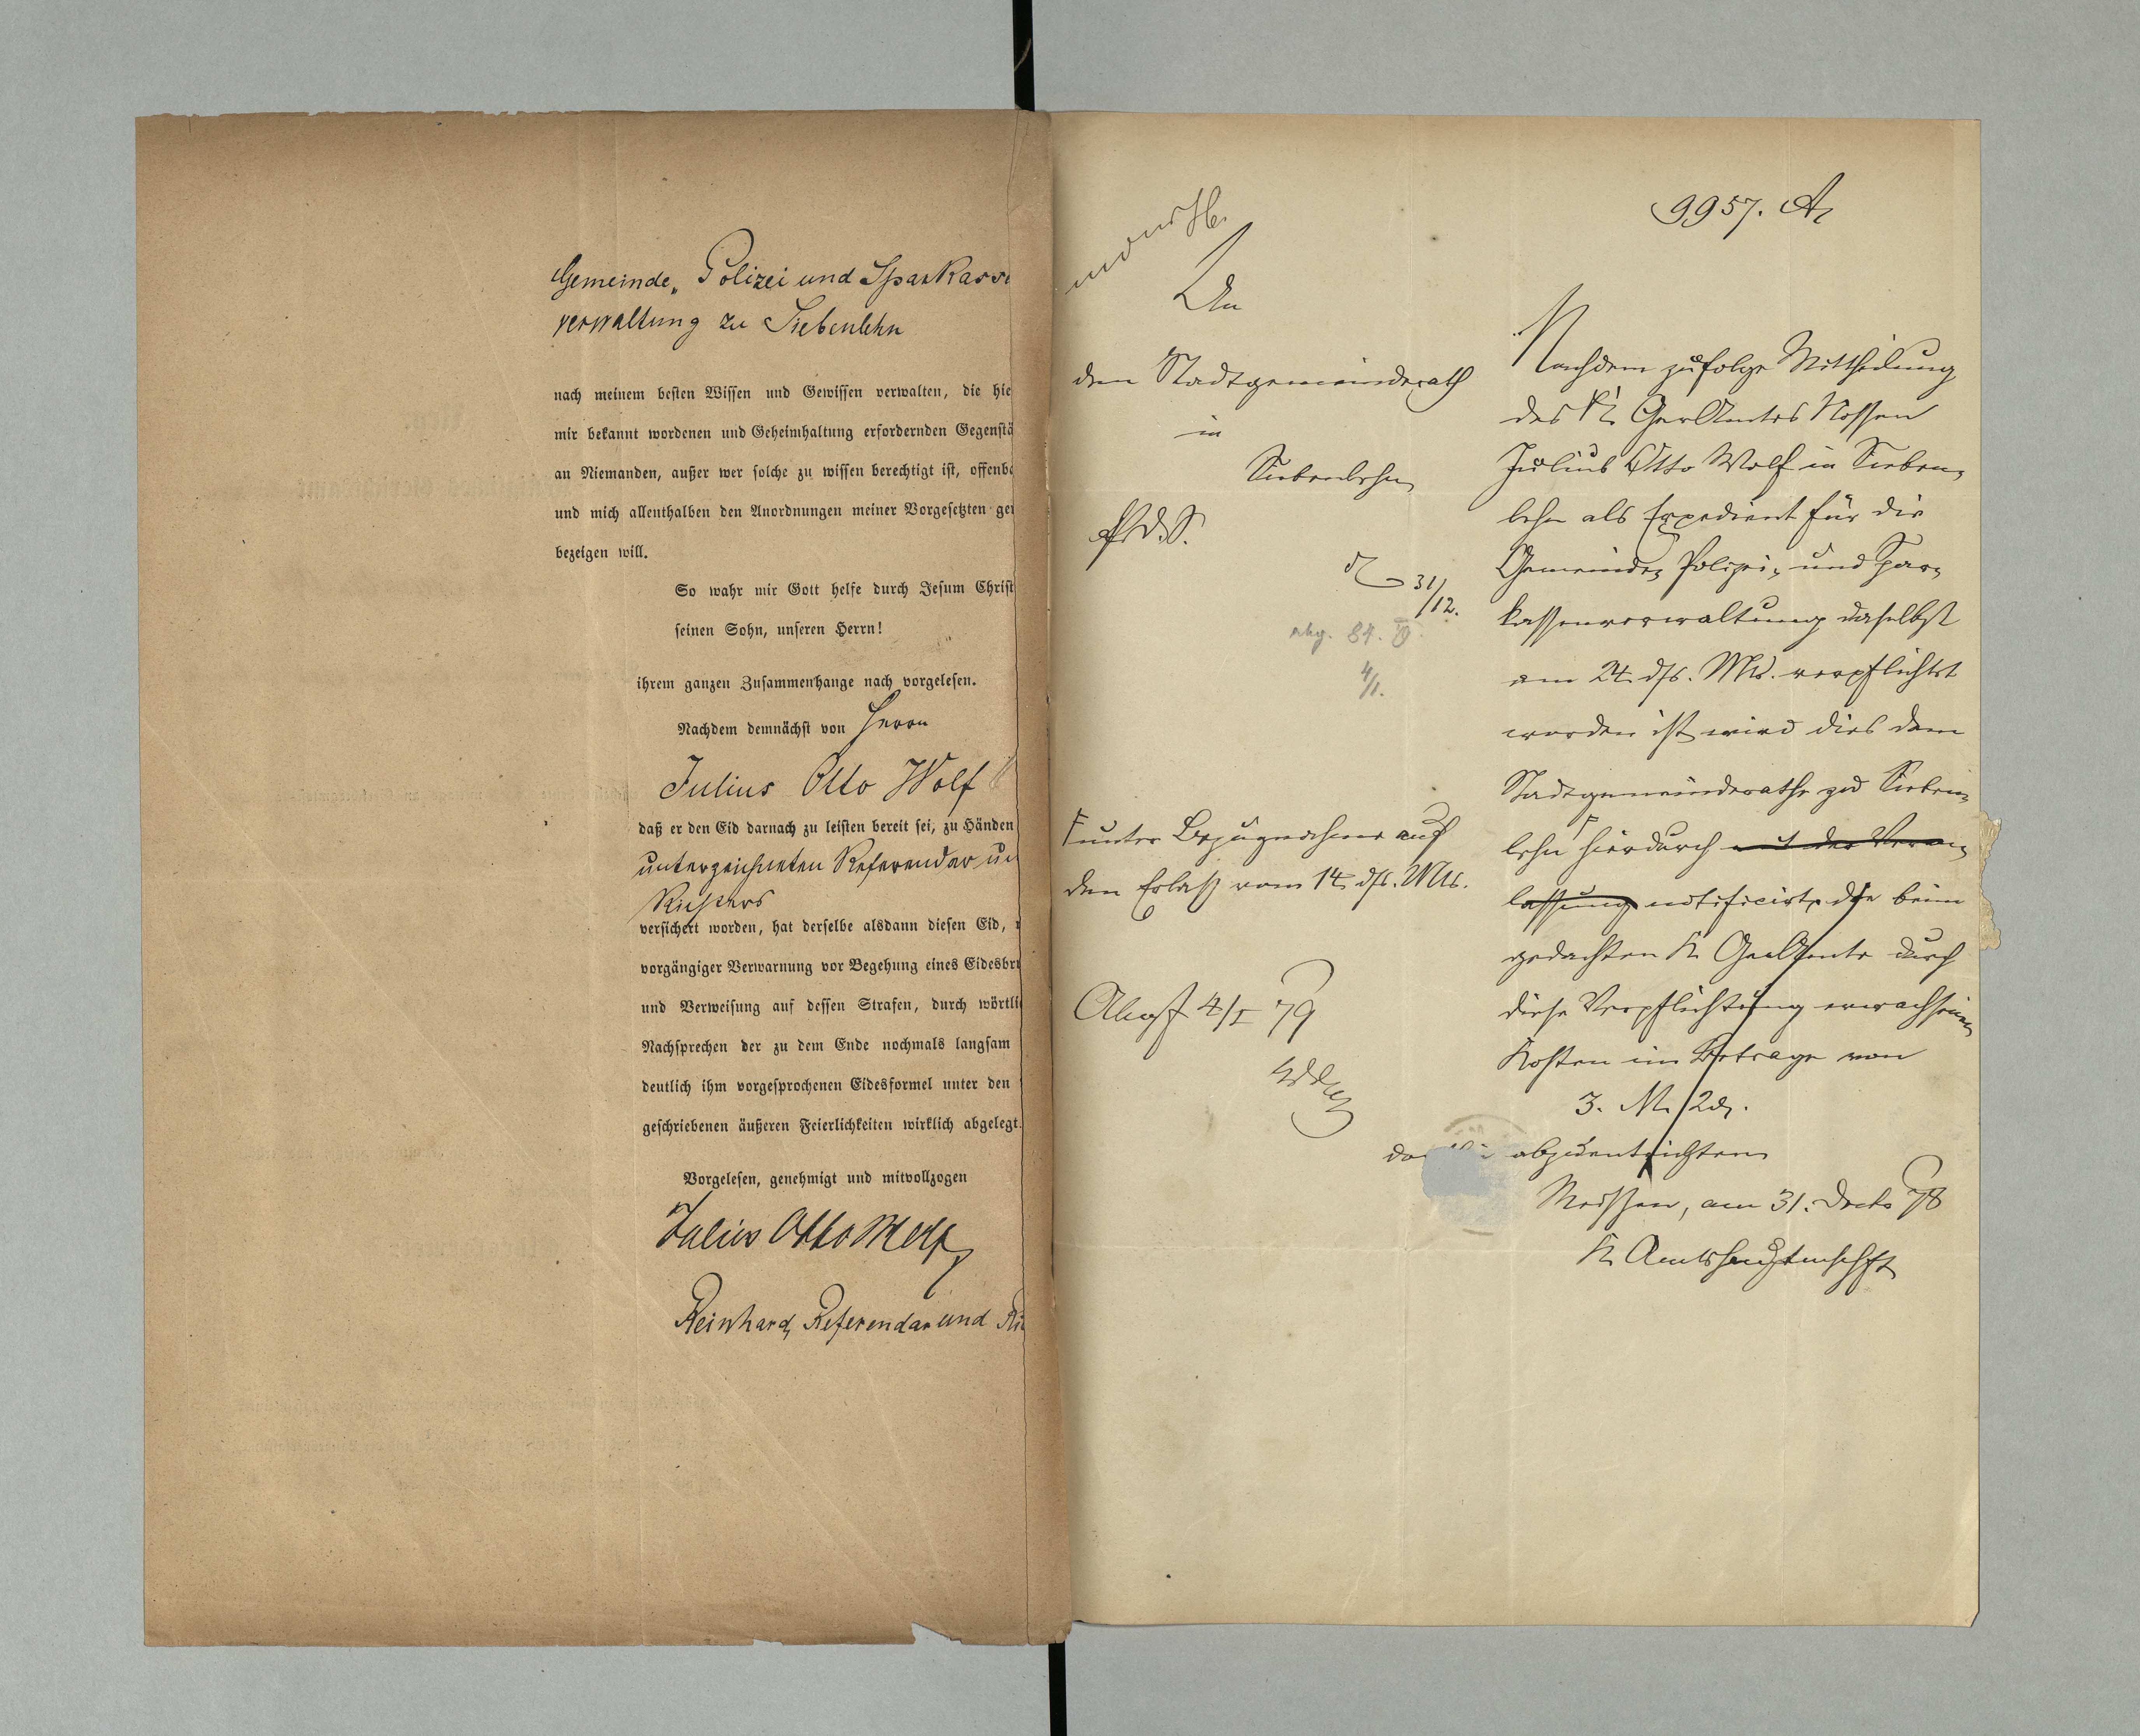 Gemeinde„ Polizei und Sparkasse
verwaltung zu Siebenlehn
nach meinem besten Wissen und Gewissen verwalten, die hie
mir bekannt wordenen und Geheimhaltung erfordernden Gegenstä
an Niemanden, außer wer solche zu wissen berechtigt ist, offenba
und mich allenthalben den Anordnungen meiner Vorgesetzten ge
bezeigen will.
So wahr mir Gott helfe durch Jesum Christ
seinen Sohn, unseren Herrn!
ihrem ganzen Zusammenhange nach vorgelesen.
Nachdem demnächst von Herrn
Julius Otto Wolf
daß er den Eid darnach zu leisten bereit sei, zu Händen
unterzeichneten Referendar un
Richters
versichert worden, hat derselbe alsdann diesen Eid,
vorgängiger Verwarnung vor Begehung eines Eidesbru
und Verweisung auf dessen Strafen, durch wörtli
Nachsprechen der zu dem Ende nochmals langsam
deutlich ihm vorgesprochenen Eidesformel unter den
geschriebenen äußeren Feierlichkeiten wirklich abgelegt.
Vorgelesen, genehmigt und mitvollzogen
Julius Otto Wolf
Reinhard, Referendar und Ri
9957. A
An
den Stadtgemeinderath
in
Siebenlehn
31/12.
84.
4/1.
Γ unter Bezugnahme auf
den Erlaß vom 14. dss. Mts.
4/I 79
Nachdem zufolge Mittheilung
des K. GerAmtes Nossen
Julius Otto Wolf in Sieben-
lehn als Expedient für die
Gemeinde-, Polizei- und Spar-
kassenverwaltung daselbst
am 24. dss. Mts. verpflichtet
worden ist, wird dies dem
Stadtgemeinderathe zu Sieben-
lehn Γ hierdurch mit der Veran-
lassung notificirt, die beim
gedachten K. GerAmte durch
diese Verpflichtung erwachsenen
Kosten im Betrage von
3. M. 2
abzuentrichten
Meissen, am 31. Decbr 78
K. Amtshauptmschft